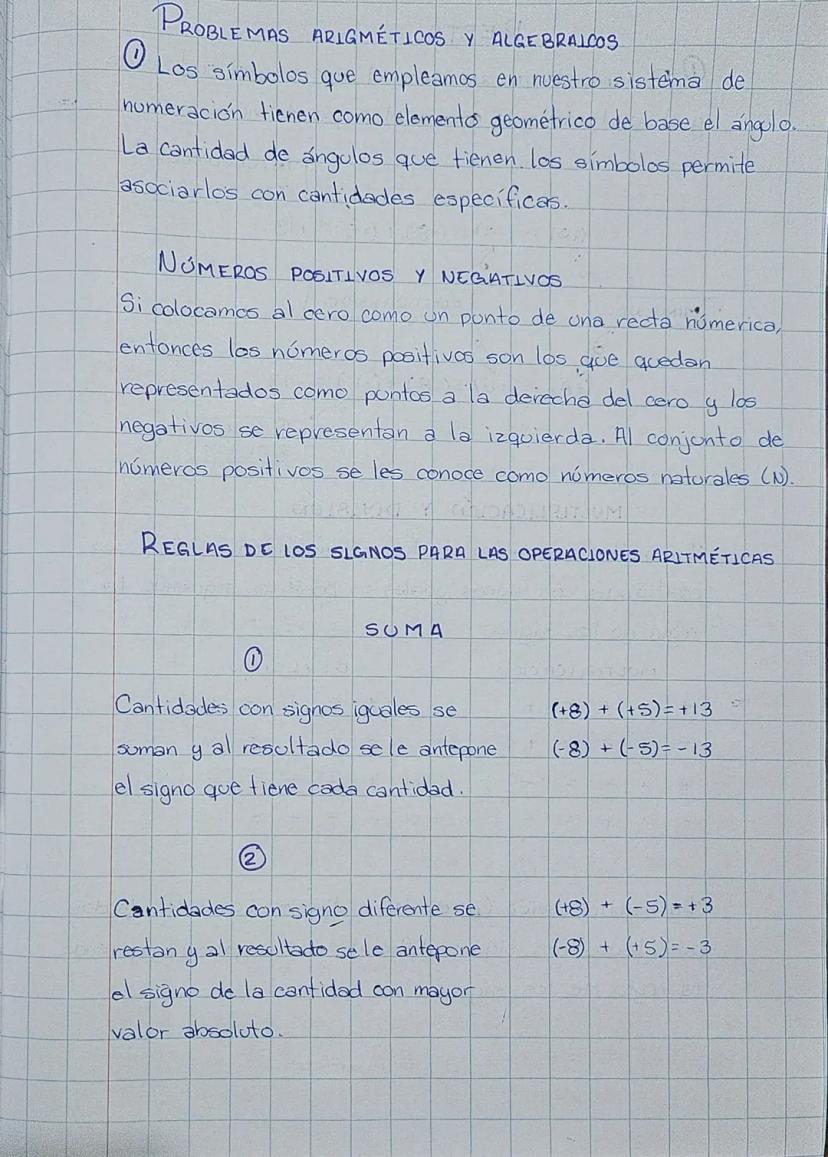 PROBLEMAS ARIGMÉTICOS Y ALGEBRAICOS
① Los símbolos que empleamos en nuestro sistema de
numeración tienen como elemento geométrico de base el ángulo.
La cantidad de ángulos que tienen los símbolos permite
asociarlos con cantidades específicas.
NÚMEROS POSITIVOS Y NEGATIVOS
Si colocamos al cero como un punto de una recta númerica,
entonces los números positivos son los que quedan
representados como puntos a la derecha del cero y los
negativos se representan a la izquierda. Al conjunto de
números positivos se les conoce como números naturales (N).
REGLAS DE LOS SIGNOS PARA LAS OPERACIONES ARITMÉTICAS
SUMA
①
Cantidades con signos iguales se (+8) + (+5) = +13
suman y al resultado se le antepone (-8) + (-5) = -13
el signo que tiene cada cantidad.
②
Cantidades con signo diferente se (+8) + (-5) = +3
restan y al resultado se le antepone (-8) + (+5) = -3
el signo de la cantidad con mayor
valor absoluto.